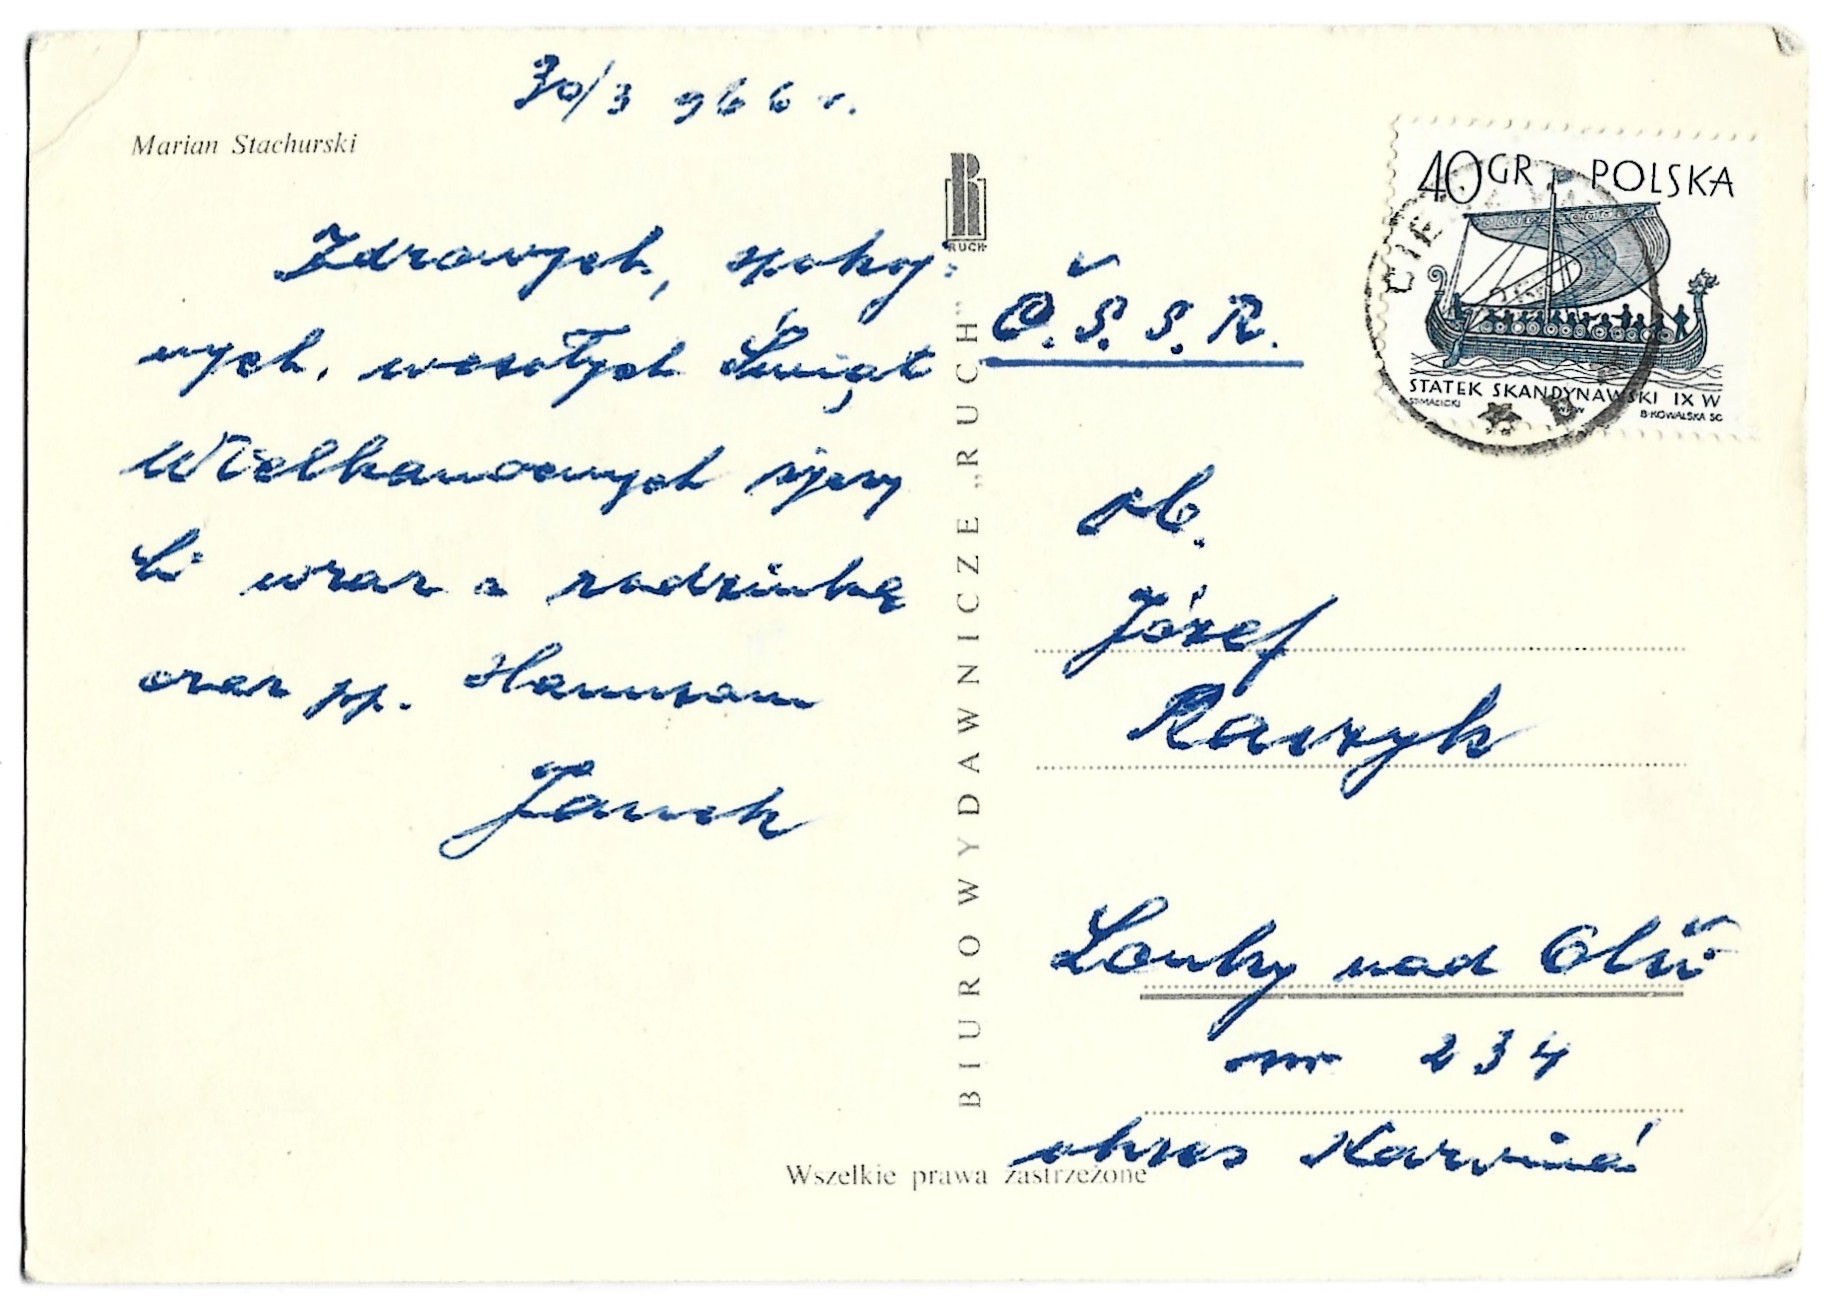 30/3 966 r.
Marian Stachurski
Zdrowych, spokoj-
nych, wesołych Świąt
Wielkanocnych życzy
Ci wraz z rodzinką
oraz pp. Hanusom
Janek
RUCH
BIURO WYDAWNICZE „RUCH”
40 GR POLSKA
STATEK SKANDYNAWSKI IX W
ST. MAŁECKI
B. KOWALSKA SC
Č. S. S. R.
ob.
Józef
Raszyk
Louky nad Olší
nr 234
okres Karviná
Wszelkie prawa zastrzeżone